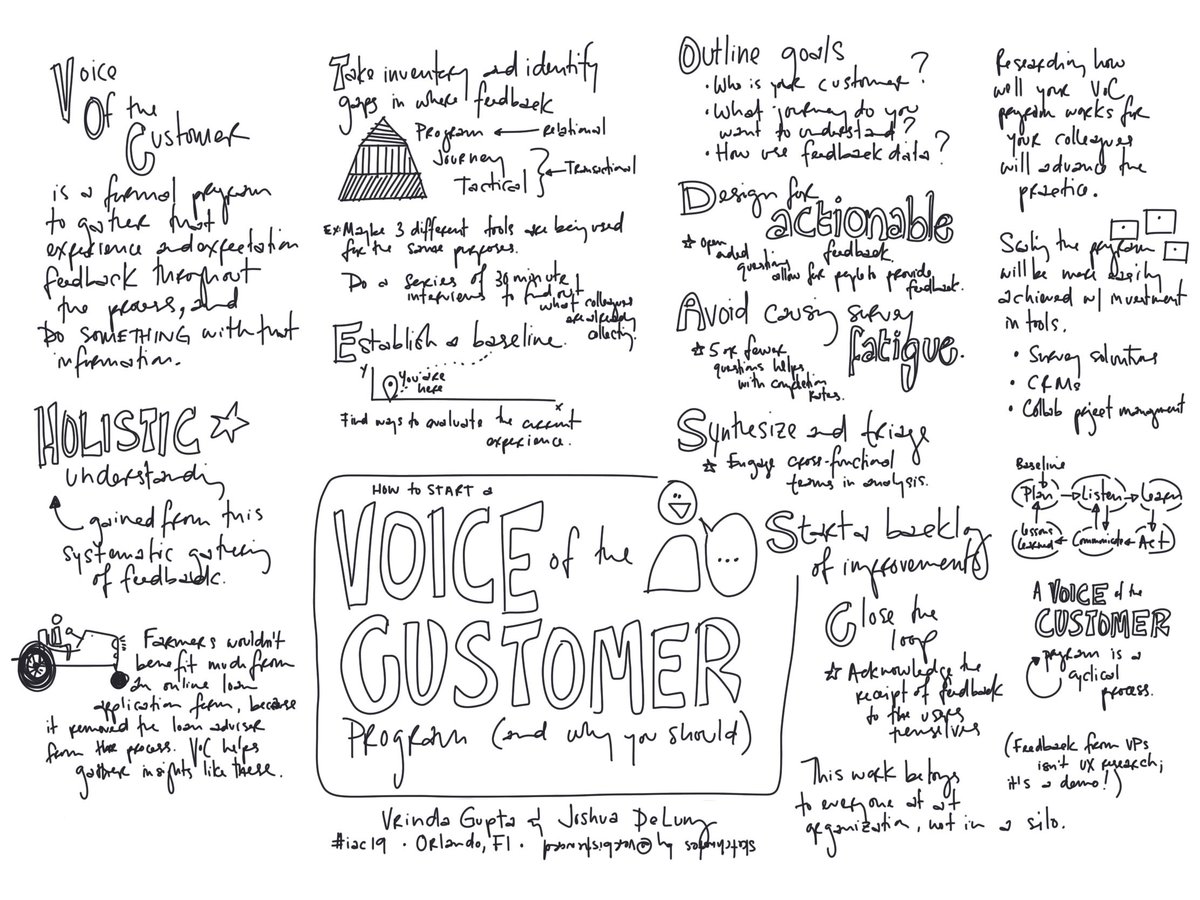 Voice
Of the
Customer
is a formal program
to gather that
experience and expectation
feedback throughout
the process, and
Do SOMETHING with that
information.
HOLISTIC
understanding
gained from this
systematic gathering
of feedback.
Farmers wouldn't
benefit much from
an online loan
application form, because
it removed the loan advisor
from the process. VoC helps
gather insights like these.
Take inventory and identify
gaps in where feedback
Program
Relational
Journey
Tactical
Transactional
Ex: Maybe 3 different tools are being used
for the same purposes.
Do a series of 30 minute
interviews to find out
what colleagues
are already
collecting.
Establish a baseline.
Y
You are
here
X
Find ways to evaluate the current
experience.
HOW TO START a
VOICE of the
...
CUSTOMER
Program (and why you should)
Vrinda Gupta & Joshua DeLung
#iac19 · Orlando, Fl ·
sketchnotes by
Outline goals
· Who is your customer?
· What journey do you
want to understand?
· How use feedback data?
Design for
actionable
feedback.
Open
ended
questions
allow for people to provide
feedback.
Avoid causing survey
fatigue.
5 or fewer
questions helps
with completion
rates.
Synthesize and triage
Engage cross-functional
teams in analysis.
Start a backlog
of improvements
Close the
loop
Acknowledge the
receipt of feedback
to the users
themselves
This work belongs
to everyone at at
organization, not in a silo.
Researching how
well your VoC
program works for
your colleagues
will advance the
practice.
Scaling the program
will be more easily
achieved w/ investment
in tools.
· Survey solutions
· CRMs
· Collab project managment
Baseline
Plan
Listen
Learn
Lessons
Learned
Communicate
Act
A VOICE of the
CUSTOMER
program is a
cyclical
process.
(Feedback from VPs
isn't UX research;
it's a demo!)